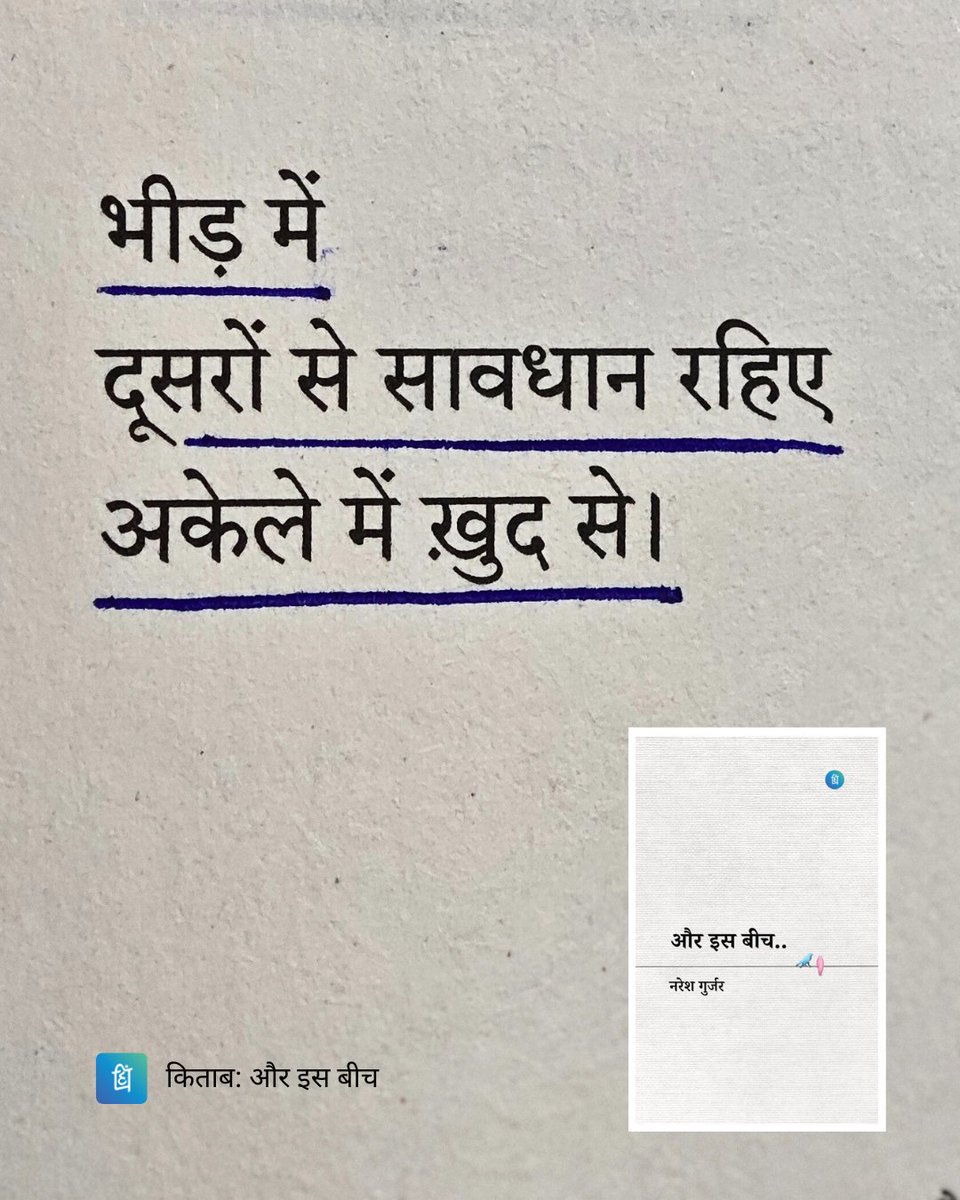 भीड़ में
दूसरों से सावधान रहिए
अकेले में ख़ुद से।
और इस बीच..
नरेश गुर्जर
किताब: और इस बीच